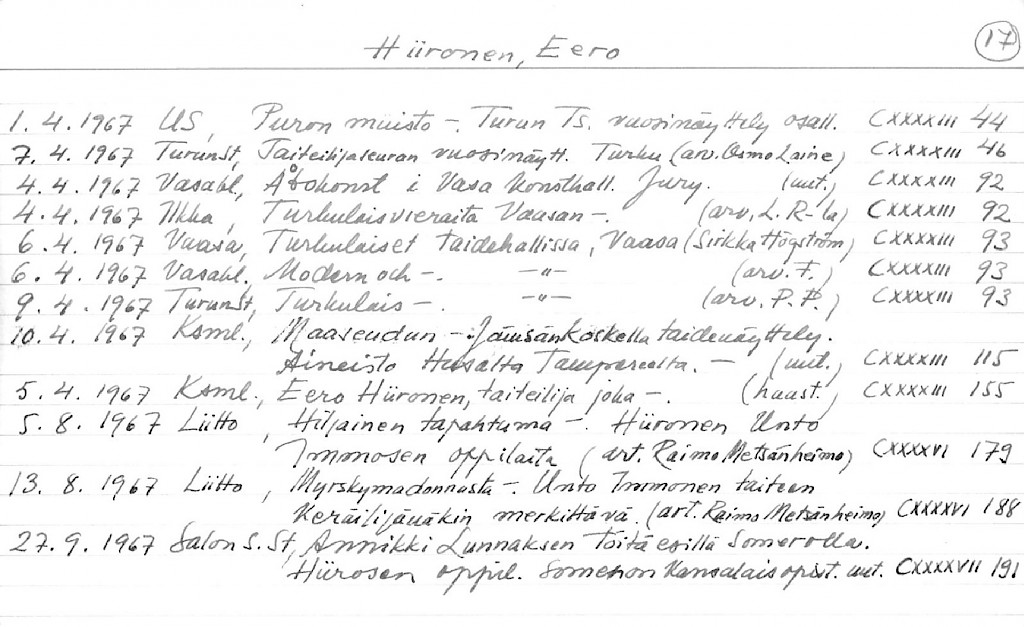 Hiironen, Eero 17
1.4.1967 US, Puron muisto -. Turun Ts. vuosinäyttely osall. CXXXXIII 44
7.4.1967 TurunSt, Taiteilijaseuran vuosinäytt. Turku (arv. Osmo Laine) CXXXXIII 46
4.4.1967 Vasabl, Åbokonst i Vasa Konsthall. Jury. (uut.) CXXXXIII 92
4.4.1967 Ilkka, Turkulaisvieraita Vaasan -. (arv. L. R-la) CXXXXIII 92
6.4.1967 Vaasa, Turkulaiset taidehallissa, Vaasa (Sirkka Högström) CXXXXIII 93
6.4.1967 Vasabl, Modern och -. -"- (arv. F.) CXXXXIII 93
9.4.1967 TurunSt, Turkulais -. -"- (arv. P.P.) CXXXXIII 93
10.4.1967 Ksml., Maaseudun - Jämsänkoskella taidenäyttely.
Aineisto Husalta Tampereelta. - (uut.) CXXXXIII 115
5.4.1967 Ksml., Eero Hiironen, taiteilija joka -. (haast.) CXXXXIII 155
5.8.1967 Liitto, Hiljainen tapahtuma -. Hiironen Unto
Immosen oppilaita (art. Raimo Metsänheimo) CXXXXVI 179
13.8.1967 Liitto, Myrskymadonnasta -. Unto Immonen taiteen
keräilijänäkin merkittävä. (art. Raimo Metsänheimo) CXXXXVI 188
27.9.1967 Salon S. St, Annikki Lunnaksen töitä esillä Somerolla.
Hiirosen oppil. Someron Kansalaisopist. uut. CXXXXVII 191